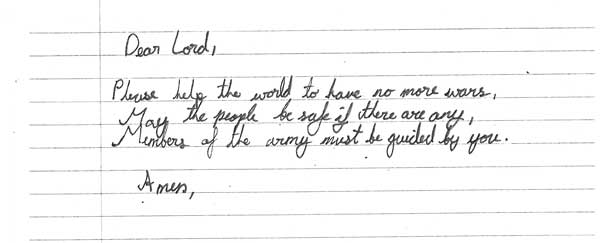 Dear Lord,
Please help the world to have no more wars,
May the people be safe if there are any,
Members of the army must be guided by you.
Amen,